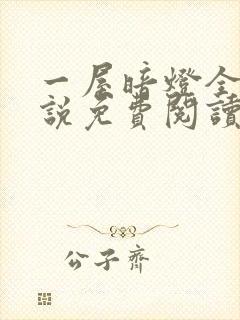 一屋暗燈全
說免費閱讀
公子齊